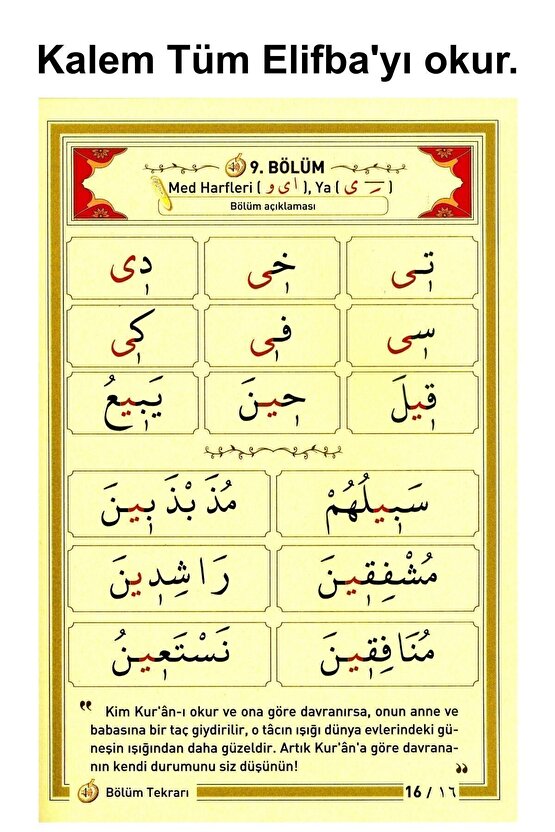 Kalem Tüm Elifba'yı okur.
9. BÖLÜM
Med Harfleri ( ا ى و ), Ya ( ـِ ى )
Bölüm açıklaması
تِى خِى دِى
سِى فِى كِى
قِيلَ حِينَ يَبِيعُ
سَبِيلُهُمْ مُذَبْذَبِينَ
مُشْفِقِينَ رَاشِدِينَ
مُنَافِقِينَ نَسْتَعِينُ
“ Kim Kur'ân-ı okur ve ona göre davranırsa, onun anne ve
babasına bir taç giydirilir, o tâcın ışığı dünya evlerindeki gü-
neşin ışığından daha güzeldir. Artık Kur'ân'a göre davrana-
nın kendi durumunu siz düşünün! ”
Bölüm Tekrarı 16 / ١٦